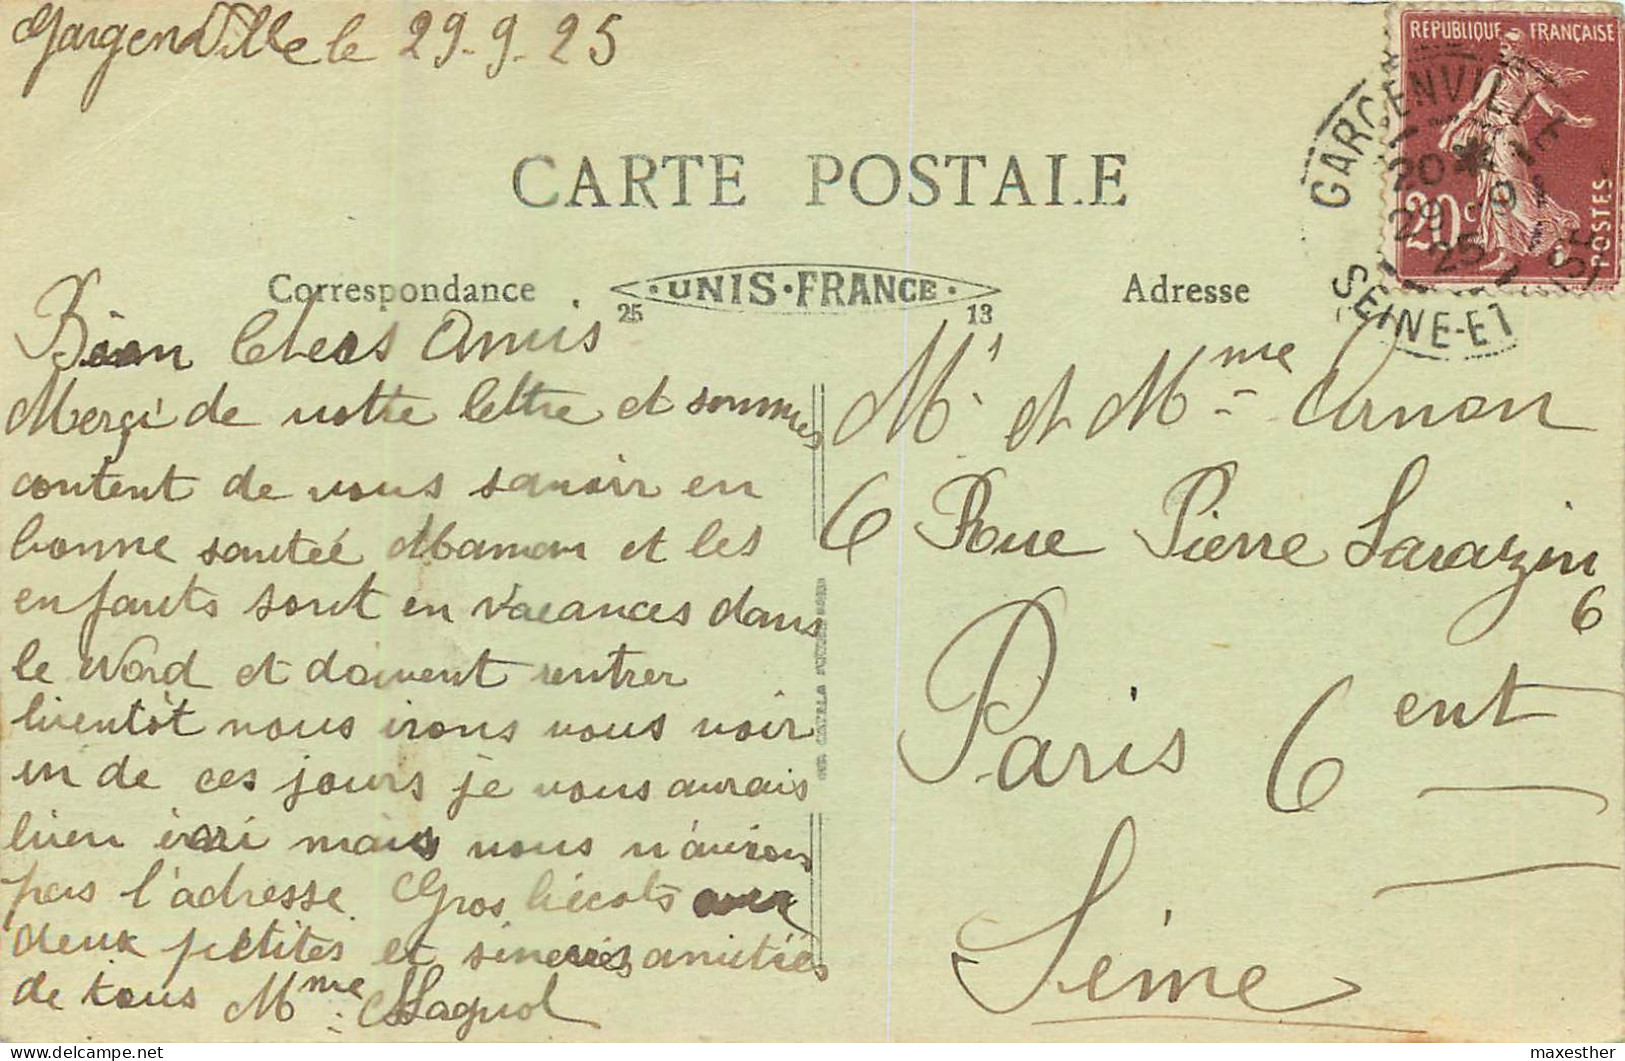 Gargenville le 29-9-25
REPUBLIQUE FRANÇAISE
20c
POSTES
GARGENVILLE
20 *
29 - 9
25
SEINE-ET
CARTE POSTALE
Correspondance
UNIS-FRANCE
25 13
Adresse
Bien Chers Amis
Merçi de votre lettre et sommes
content de vous savoir en
bonne santée Maman et les
enfants sont en vacances dans
le Nord et doivent rentrer
bientôt nous irons vous voir
un de ces jours je vous aurais
bien mais nous n'avions
pas l'adresse. Gros bécots aux
deux petites et sincères amitiés
de tous Mme
Mr et Mme Arnon
6 Rue Pierre Sarazin
6
Paris 6ent
Seine
maxesther